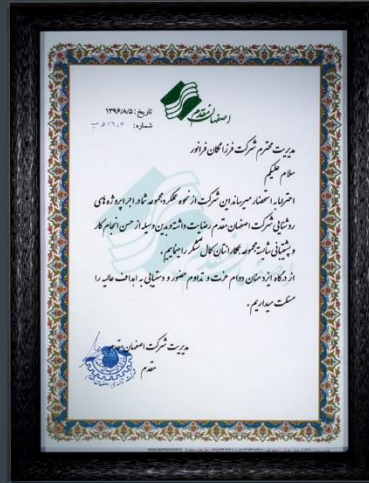 اصفهان مقدم
تاریخ: ۱۳۹۶/۸/۵
شماره:
مدیریت محترم شرکت فرزانگان فرانور
سلام علیکم
احتراما به استحضار میرساند این شرکت از نحوه عملکرد مجموعه شما در اجرا پروژه های
روشنایی شرکت اصفهان مقدم رضایت داشته و بدین وسیله از حسن انجام کار
و پشتیبانی شایسته مجموعه همکارانتان کمال تشکر را مینماییم.
از درگاه ایزد منان دوام عزت و تداوم حضور و دستیابی به اهداف عالیه را
مسئلت میداریم.
مدیریت شرکت اصفهان مقدم
مقدم